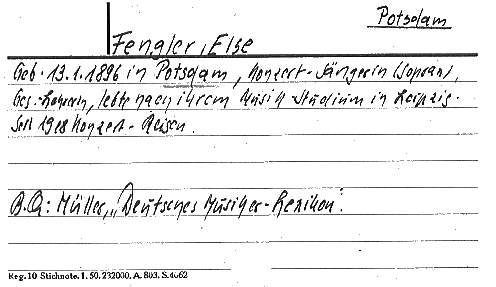 Potsdam
Fengler, Else
Geb. 13.1.1896 in Potsdam, Konzert-Sängerin (Sopran),
Ges.-Lehrerin, lebte nach ihrem Musik-Studium in Leipzig.
Seit 1918 Konzert-Reisen.
B.Q: Müller, "Deutsches Musiker-Lexikon".
Reg. 10 Stichnote. 1. 50. 232000. A. 803. S. 4062